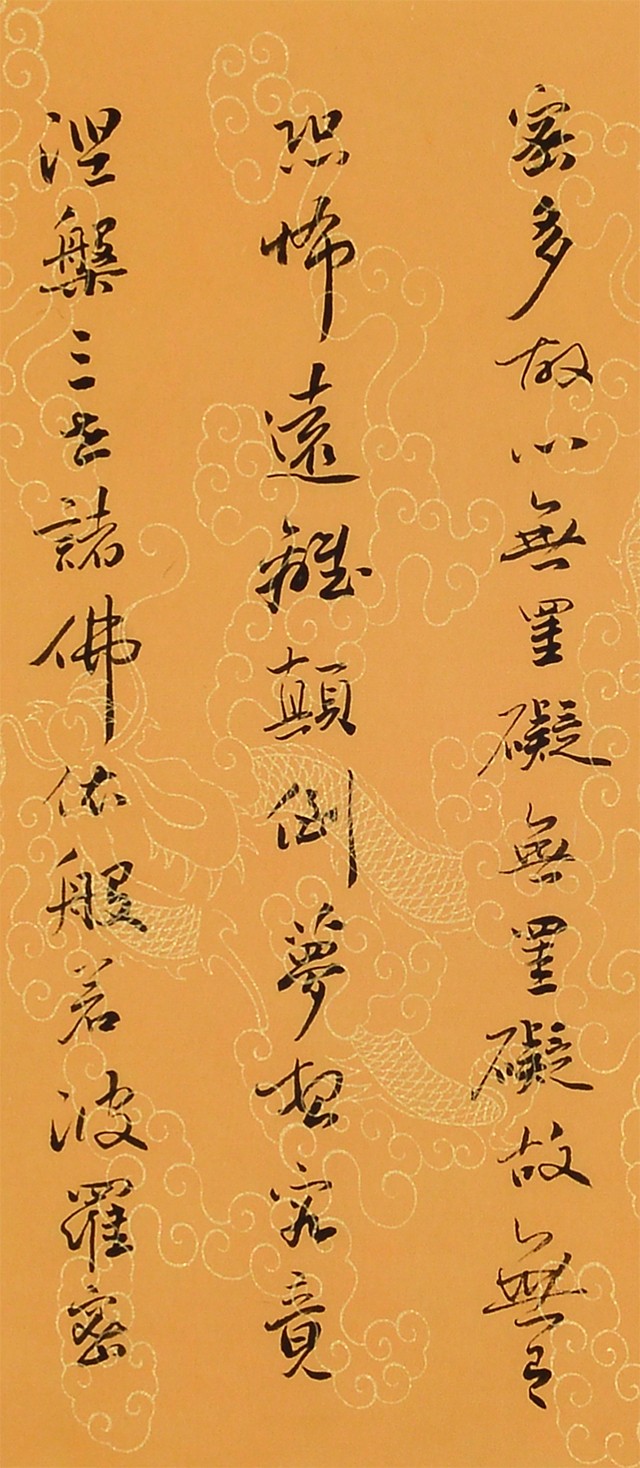 密多故心無罣礙無罣礙故無有
恐怖遠離顛倒夢想究竟
涅槃三世諸佛依般若波羅密